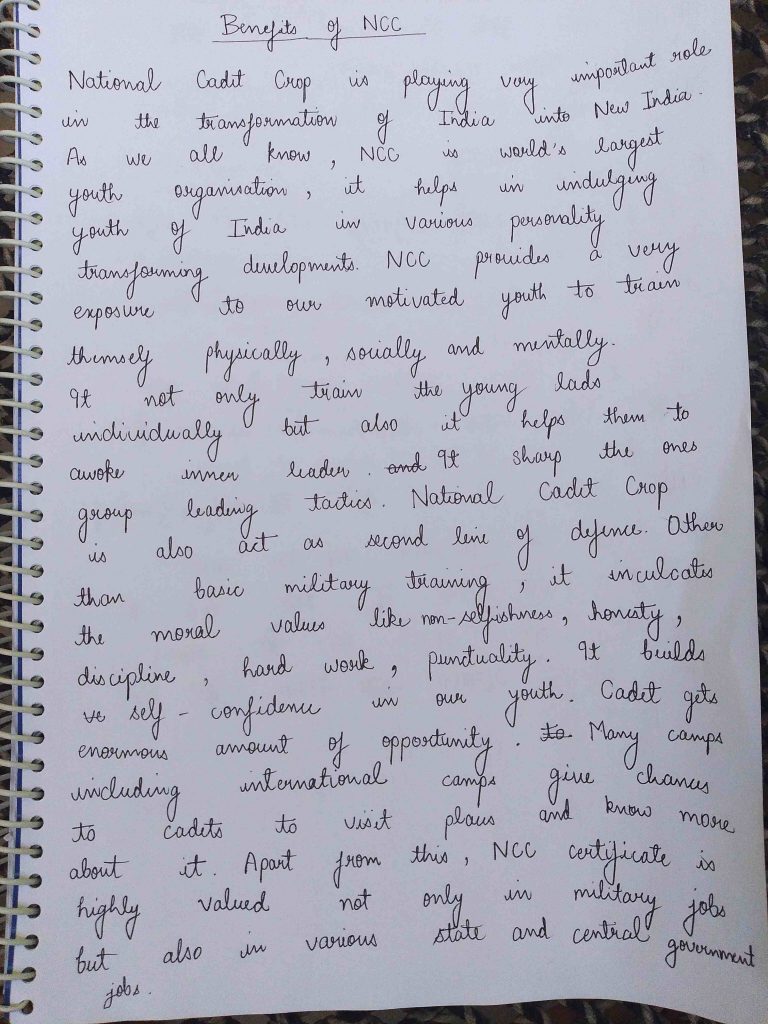 Benefits of NCC
National Cadet Crop is playing very important role
in the transformation of India into New India.
As we all know, NCC is world's largest
youth organisation, it helps in indulging
youth of India in various personality
transforming developments. NCC provides a very
exposure to our motivated youth to train
themself physically, socially and mentally.
It not only train the young lads
individually but also it helps them to
awoke inner leader. and It sharp the ones
group leading tactics. National Cadet Crop
is also act as second line of defence. Other
than basic military training, it inculcates
the moral values like non-selfishness, honesty,
discipline, hard work, punctuality. It builds
self-confidence in our youth. Cadet gets
enormous amount of opportunity. to Many camps
including international camps give chances
to cadets to visit places and know more
about it. Apart from this, NCC certificate is
highly valued not only in military jobs
but also in various state and central government
jobs.